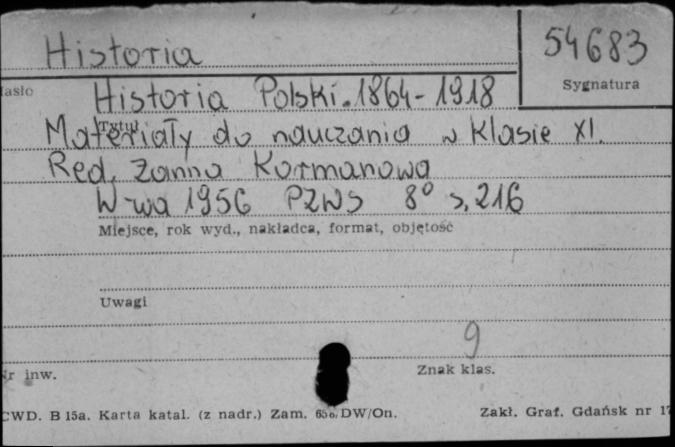 Historia
54683
asło
Sygnatura
Historia Polski. 1864-1918
Tytuł
Materiały do nauczania w klasie XI.
Red. Żanna Kormanowa
W-wa 1956 PZWS 8° s. 216
Miejsce, rok wyd., nakładca, format, objętość
Uwagi
9
Nr inw.
Znak klas.
CWD. B 15a. Karta katal. (z nadr.) Zam. DW/On.
Zakł. Graf. Gdańsk nr 17